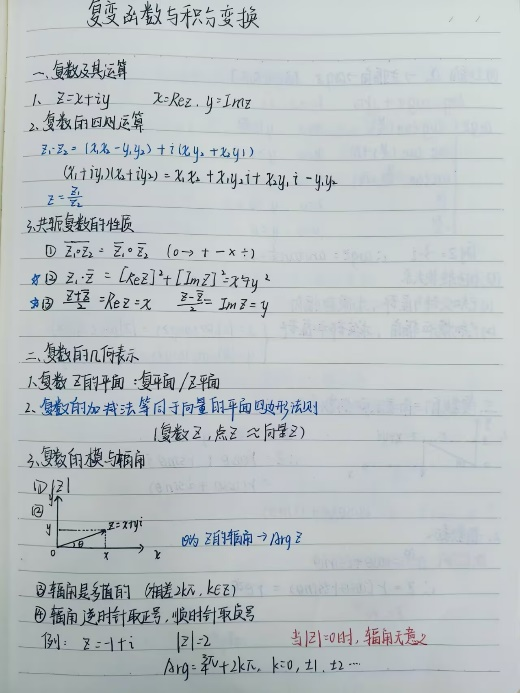 复变函数与积分变换
一、复数及其运算
1、 z=x+iy x=Rez. y=Imz
2、复数的四则运算
z₁·z₂=(x₁x₂-y₁y₂)+i(x₁y₂+x₂y₁)
(x₁+iy₁)(x₂+iy₂)=x₁x₂+x₁y₂i+x₂y₁i-y₁y₂
z=z₁/z₂
3、共轭复数的性质
① \overline{z₁∘z₂}=\overline{z₁}∘\overline{z₂} (∘→+-×÷)
☆② z·\overline{z}=[Rez]²+[Imz]²=x²+y²
☆③ (z+\overline{z})/2=Rez=x (z-\overline{z})/2=Imz=y
二、复数的几何表示
1、复数z的平面:复平面/z平面
2、复数的加减法等同于向量的平行四边形法则
(复数z,点z≈向量z)
3、复数的模与辐角
①|z|
②
y
y z=x+yi
θ
0 x x
θ为z的辐角→Argz
③辐角是多值的 (相差2kπ,k∈Z)
④辐角逆时针取正号,顺时针取负号
例: z=-1+i |z|=2 当|z|=0时,辐角无意义
Arg=¾π+2kπ, k=0,±1,±2…